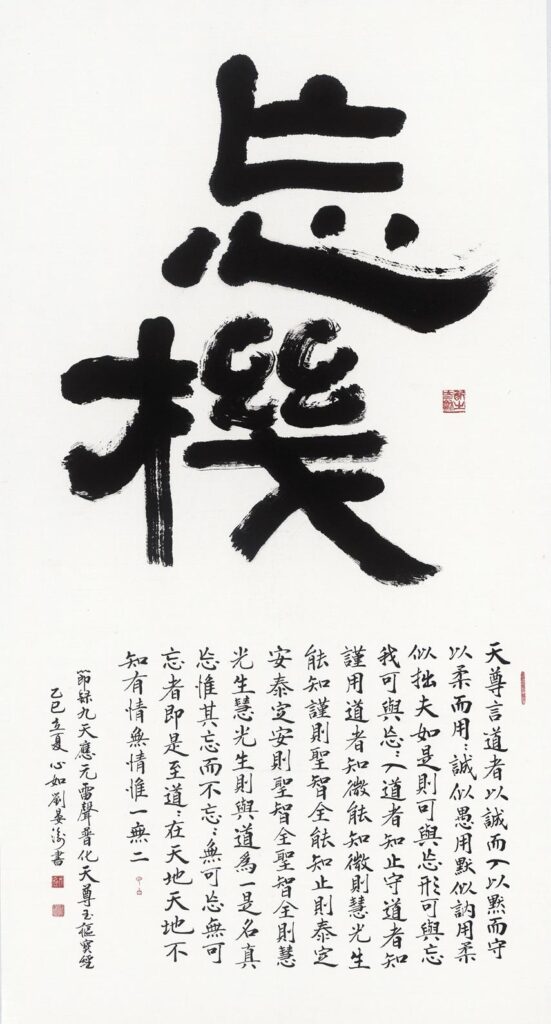 忘機
天尊言道者以誠而入以默而守
以柔而用〻誠似愚用默似訥用柔
似拙夫如是則可與忘形可與忘
我可與忘〻入道者知止守道者知
謹用道者知微能知微則慧光生
能知謹則聖智全能知止則泰定
安泰定安則聖智全聖智全則慧
光生慧光生則與道為一是名真
忘惟其忘而不忘〻無可忘無可
忘者即是至道〻在天地天地不
知有情無情惟一無二
節錄九天應元雷聲普化天尊玉樞寶經
乙巳立夏 心如劉晏書